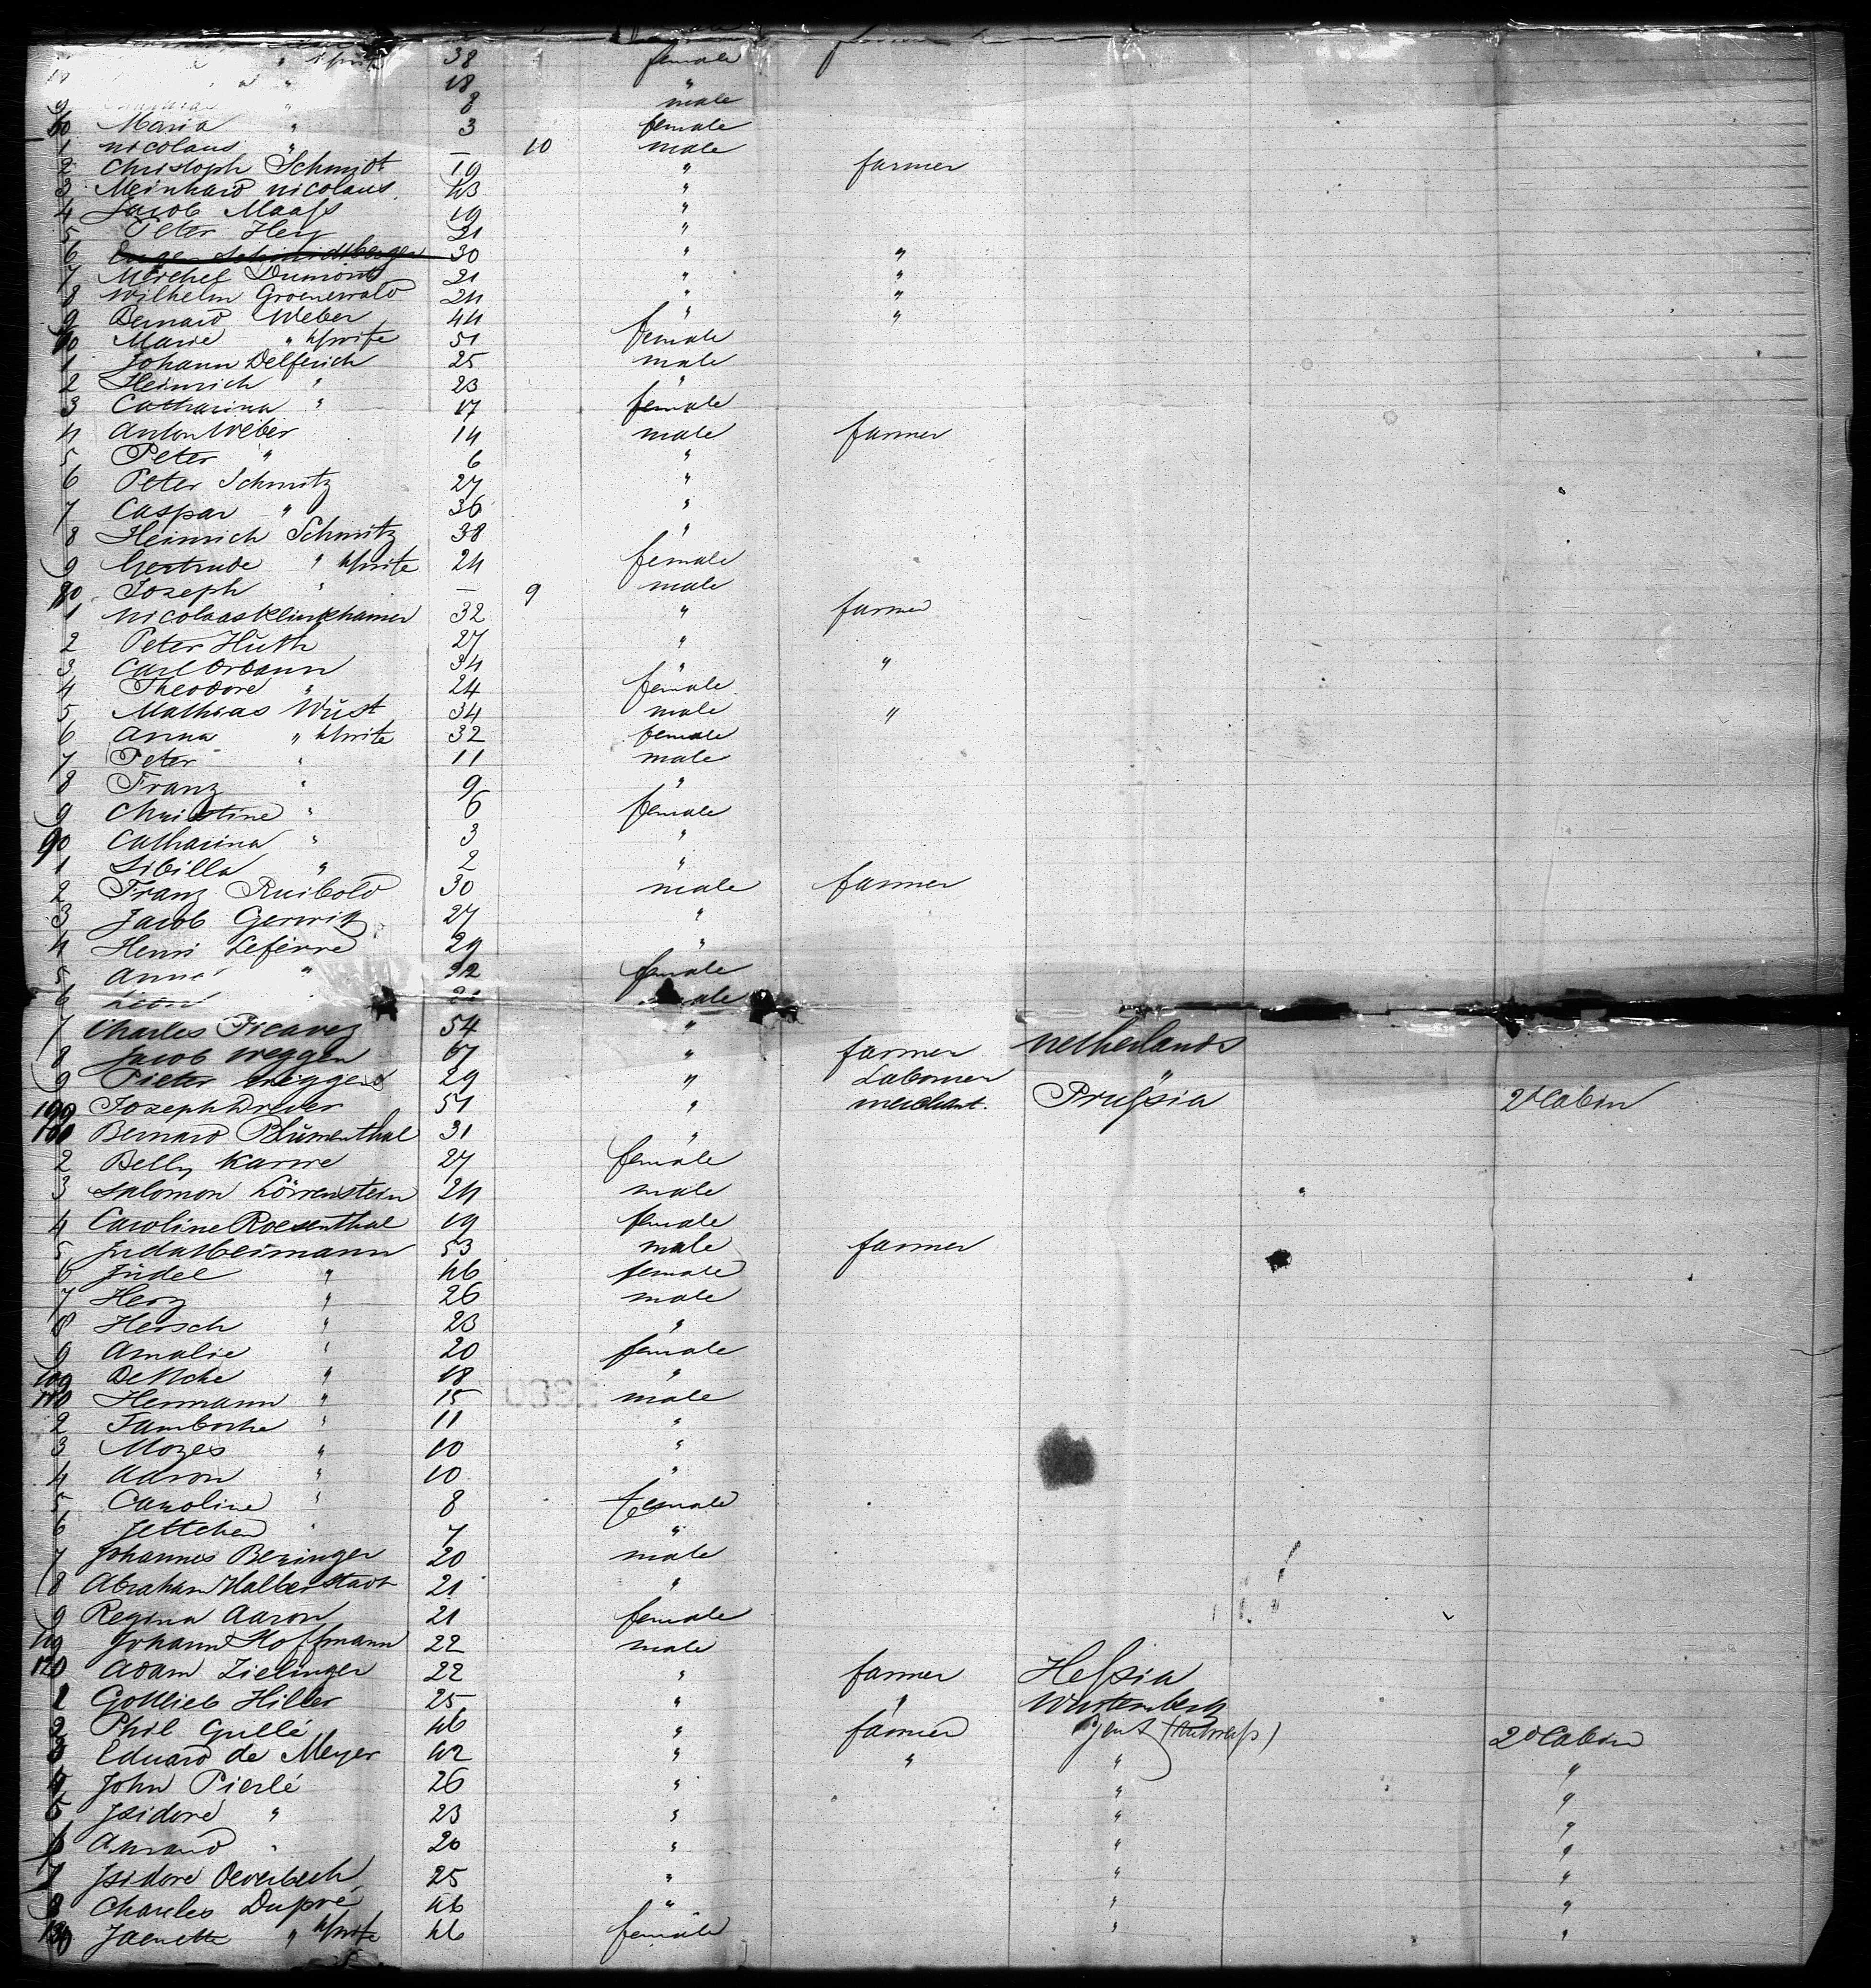 " h/wife 38 female
" 18 "
9 " 8 male
60 Maria " 3 female
1 Nicolaus " — 10 male
2 Christoph Schmidt 19 " farmer
3 Meinhard Nicolaus 43 "
4 Jacob Maass 19 "
5 Peter Hey 21 "
6 30 " "
7 Michel Dumont 21 " "
8 Wilhelm Groenewald 24 " "
9 Bernard Weber 44 " "
70 Marie " h/wife 51 female
1 Johann Delferich 25 male
2 Heinrich " 23 "
3 Catharina " 17 female
4 Anton Weber 14 male farmer
5 Peter " 6 "
6 Peter Schmitz 27 "
7 Caspar " 36 "
8 Heinrich Schmitz 38 "
9 Gertrude " h/wife 24 female
80 Joseph " — 9 male
1 Nicolaas Klinkhamer 32 " farmer
2 Peter Hüth 27 "
3 Carl Orbann 34 " "
4 Theodore " 24 female
5 Mathias Wüst 34 male "
6 Anna " h/wife 32 female
7 Peter " 11 male
8 Franz " 9 "
9 Christine " 6 female
90 Catharina " 3 "
1 Sibilla " 2 "
2 Franz Ruibold 30 male farmer
3 Jacob Gerwin 27 "
4 Henri Lefèvre 29 "
5 Anna " 32 female
6 Leon male
7 Charles Picavez 54 "
8 Jacob Weggen 67 " farmer Netherlands
9 Pieter Wiggers 29 " Labourer "
100 Joseph Drever 51 " merchant. Prussia 2d Cabin
101 Bernard Blümenthal 31 "
2 Belly Karwe 27 female
3 Salomon Löwenstein 24 male
4 Caroline Roesenthal 19 female
5 Juda Heimann 53 male farmer
6 Jüdel " 46 female
7 Herz " 26 male
8 Hersch " 23 "
9 Amalie " 20 female
109 " 18 "
110 Hermann " 15 male
2 " 11 "
3 Mozes " 10 "
4 Aaron " 10 "
5 Caroline " 8 female
6 Jettchen " 7 "
7 Johannes Beringer 20 male
8 Abraham Halberstadt 21 "
9 Regina Aaron 21 female
119 Johann Hoffmann 22 male
120 Adam Zielinger 22 " farmer Hessia
1 Gottlieb Hiller 25 " " Wurtemberg
2 Phil Gullé 46 " farmer 2d Cabin
3 Eduard de Meyer 42 " " " "
4 John Pierlé 26 " " "
5 Isidore " 23 " " "
6 Amand " 20 " " "
7 Isidore Oeverbech 25 " " "
8 Charles Dupré 46 " " "
130 Jaenette " h/wife 46 female " "